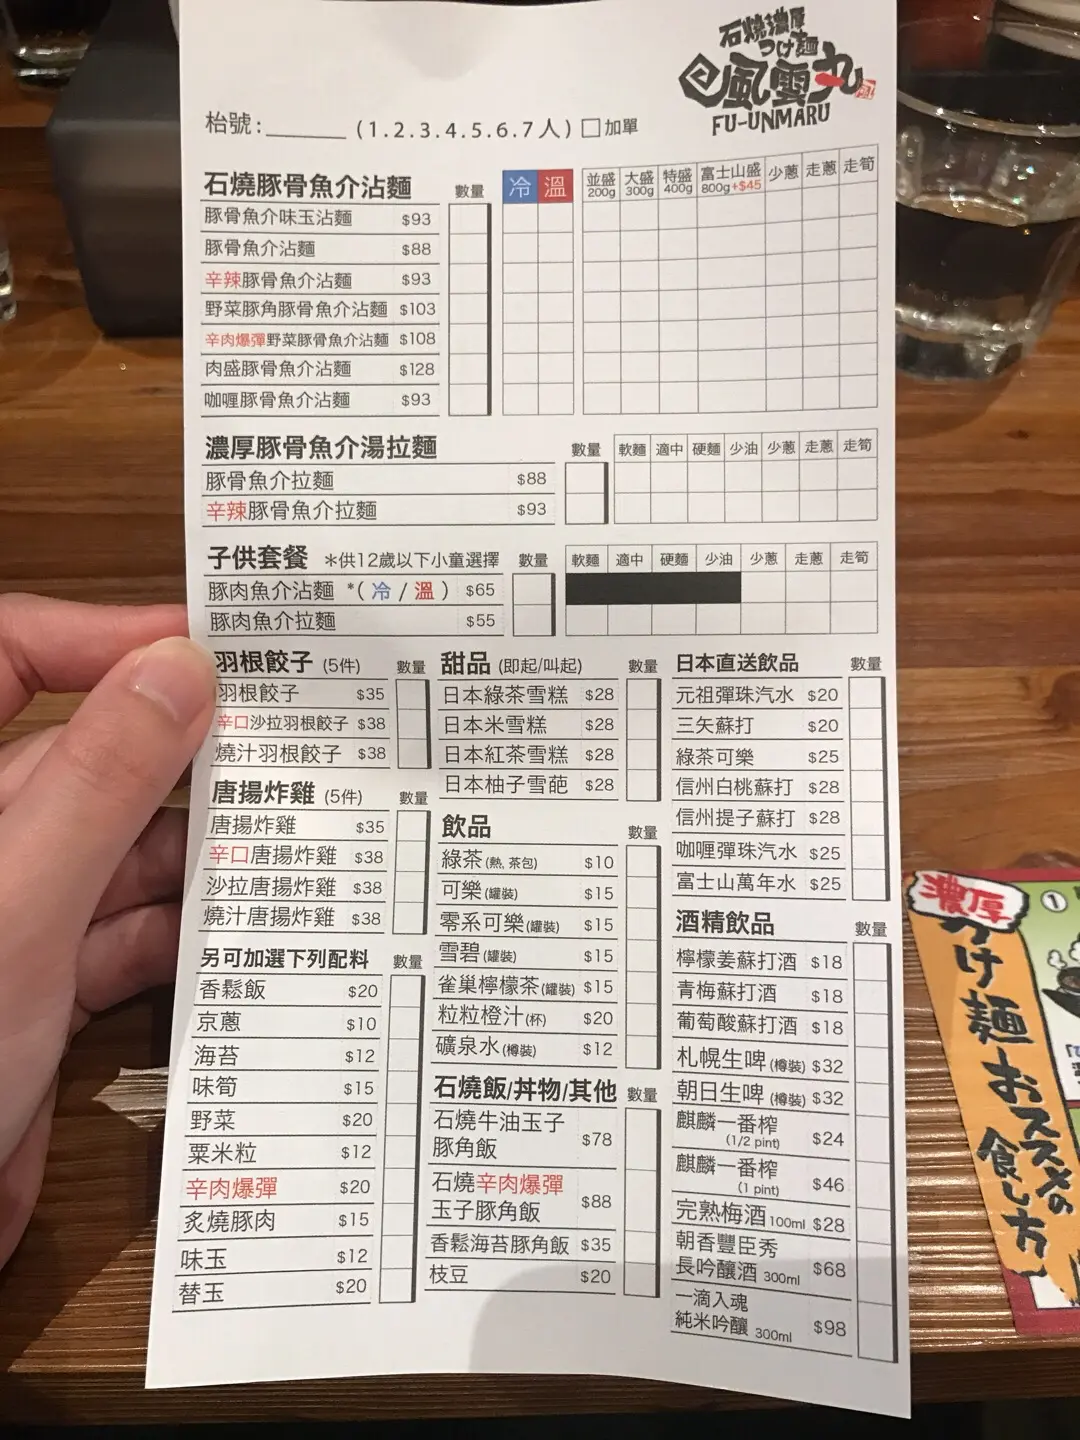 石燒濃厚
つけ麺
風雲丸
FU-UNMARU
枱號:______ (1.2.3.4.5.6.7人) □加單
石燒豚骨魚介沾麵 數量 冷 溫 並盛200g 大盛300g 特盛400g 富士山盛800g+$45 少蔥 走蔥 走筍
豚骨魚介味玉沾麵 $93
豚骨魚介沾麵 $88
辛辣豚骨魚介沾麵 $93
野菜豚角豚骨魚介沾麵 $103
辛肉爆彈野菜豚骨魚介沾麵 $108
肉盛豚骨魚介沾麵 $128
咖喱豚骨魚介沾麵 $93
濃厚豚骨魚介湯拉麵 數量 軟麵 適中 硬麵 少油 少蔥 走蔥 走筍
豚骨魚介拉麵 $88
辛辣豚骨魚介拉麵 $93
子供套餐 *供12歲以下小童選擇 數量 軟麵 適中 硬麵 少油 少蔥 走蔥 走筍
豚肉魚介沾麵 *(冷/溫) $65
豚肉魚介拉麵 $55
羽根餃子 (5件) 數量
羽根餃子 $35
辛口沙拉羽根餃子 $38
燒汁羽根餃子 $38
唐揚炸雞 (5件) 數量
唐揚炸雞 $35
辛口唐揚炸雞 $38
沙拉唐揚炸雞 $38
燒汁唐揚炸雞 $38
另可加選下列配料 數量
香鬆飯 $20
京蔥 $10
海苔 $12
味筍 $15
野菜 $20
粟米粒 $12
辛肉爆彈 $20
炙燒豚肉 $15
味玉 $12
替玉 $20
甜品 (即起/叫起) 數量
日本綠茶雪糕 $28
日本米雪糕 $28
日本紅茶雪糕 $28
日本柚子雪葩 $28
飲品 數量
綠茶(熱, 茶包) $10
可樂(罐裝) $15
零系可樂(罐裝) $15
雪碧(罐裝) $15
雀巢檸檬茶(罐裝) $15
粒粒橙汁(杯) $20
礦泉水(樽裝) $12
石燒飯/丼物/其他 數量
石燒牛油玉子
豚角飯 $78
石燒辛肉爆彈
玉子豚角飯 $88
香鬆海苔豚角飯 $35
枝豆 $20
日本直送飲品 數量
元祖彈珠汽水 $20
三矢蘇打 $20
綠茶可樂 $25
信州白桃蘇打 $28
信州提子蘇打 $28
咖喱彈珠汽水 $25
富士山萬年水 $25
酒精飲品 數量
檸檬姜蘇打酒 $18
青梅蘇打酒 $18
葡萄酸蘇打酒 $18
札幌生啤(樽裝) $32
朝日生啤(樽裝) $32
麒麟一番榨
(1/2 pint) $24
麒麟一番榨
(1 pint) $46
完熟梅酒100ml $28
朝香豐臣秀
長吟釀酒 300ml $68
一滴入魂
純米吟釀 300ml $98
濃厚
つけ麺おススメの
食し方
①